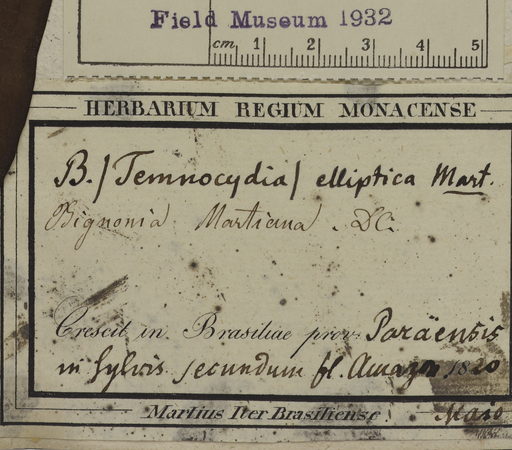 Field Museum 1932
cm 1 2 3 4 5
HERBARIUM REGIUM MONACENSE
B./Temnocydia/ elliptica Mart.
Bignonia Martiana. DC.
Crescit in Brasiliae prov. Paraënsis
in sylvis secundum fl. Amazon 1820
Martius Iter Brasiliense. Maio